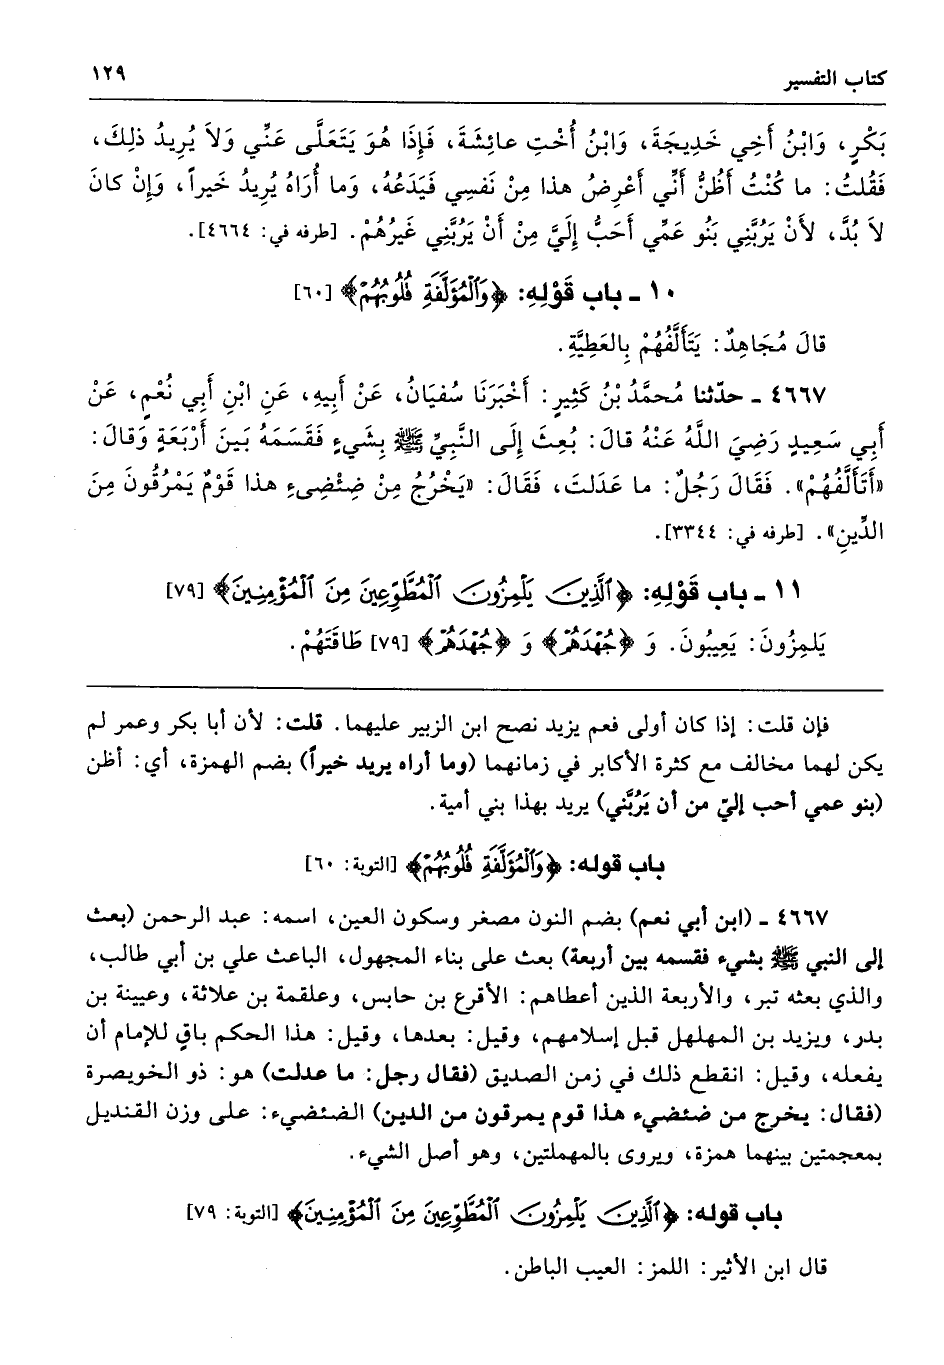 كتاب التفسير ١٢٩
بَكْرٍ، وَابْنُ أَخِي خَدِيجَةَ، وَابْنُ أُخْتِ عائِشَةَ، فَإِذَا هُوَ يَتَعَلَّى عَنِّي وَلاَ يُرِيدُ ذلِكَ،
فَقُلتُ: ما كُنْتُ أَظُنُّ أَنِّي أَعْرِضُ هذا مِنْ نَفسِي فَيَدَعُهُ، وَما أُرَاهُ يُرِيدُ خَيراً، وَإِنْ كانَ
لاَ بُدَّ، لأَنْ يَرُبَّنِي بَنُو عَمِّي أَحَبُّ إِلَيَّ مِنْ أَنْ يَرُبَّنِي غَيرُهُمْ. [طرفه في: ٤٦٦٤].
١٠ ـ باب قَوْلِهِ: ﴿وَٱلْمُؤَلَّفَةِ قُلُوبُهُمْ﴾ [٦٠]
قالَ مُجَاهِدٌ: يَتَأَلَّفُهُمْ بِالعَطِيَّةِ.
٤٦٦٧ ـ حدّثنا مُحمَّدُ بْنُ كَثِيرٍ: أَخْبَرَنَا سُفيَانُ، عَنْ أَبِيهِ، عَنِ ابْنِ أَبِي نُعْمٍ، عَنْ
أَبِي سَعِيدٍ رَضِيَ اللَّهُ عَنْهُ قالَ: بُعِثَ إِلَى النَّبِيِّ ﷺ بِشَيءٍ فَقَسَمَهُ بَينَ أَرْبَعَةٍ وَقالَ:
«أَتَأَلَّفُهُمْ». فَقَالَ رَجُلٌ: ما عَدَلتَ، فَقَالَ: «يَخْرُجُ مِنْ ضِئْضِىءِ هذا قَوْمٌ يَمْرُقُونَ مِنَ
الدِّينِ». [طرفه في: ٣٣٤٤].
١١ ـ باب قَوْلِهِ: ﴿ٱلَّذِينَ يَلْمِزُونَ ٱلْمُطَّوِّعِينَ مِنَ ٱلْمُؤْمِنِينَ﴾ [٧٩]
يَلمِزُونَ: يَعِيبُونَ. وَ ﴿جُهْدَهُمْ﴾ وَ ﴿جُهْدَهُمْ﴾ [٧٩] طَاقَتَهُمْ.
فإن قلت: إذا كان أولى فعم يزيد نصح ابن الزبير عليهما. قلت: لأن أبا بكر وعمر لم
يكن لهما مخالف مع كثرة الأكابر في زمانهما (وما أراه يريد خيراً) بضم الهمزة، أي: أظن
(بنو عمي أحب إليّ من أن يَرُبَّني) يريد بهذا بني أمية.
باب قوله: ﴿وَٱلْمُؤَلَّفَةِ قُلُوبُهُمْ﴾ [التوبة: ٦٠]
٤٦٦٧ ـ (ابن أبي نعم) بضم النون مصغر وسكون العين، اسمه: عبد الرحمن (بعث
إلى النبي ﷺ بشيء فقسمه بين أربعة) بعث على بناء المجهول، الباعث علي بن أبي طالب،
والذي بعثه تبر، والأربعة الذين أعطاهم: الأقرع بن حابس، وعلقمة بن علاثة، وعيينة بن
بدر، ويزيد بن المهلهل قبل إسلامهم، وقيل: بعدها، وقيل: هذا الحكم باقٍ للإمام أن
يفعله، وقيل: انقطع ذلك في زمن الصديق (فقال رجل: ما عدلت) هو: ذو الخويصرة
(فقال: يخرج من ضئضيء هذا قوم يمرقون من الدين) الضئضيء: على وزن القنديل
بمعجمتين بينهما همزة، ويروى بالمهملتين، وهو أصل الشيء.
باب قوله: ﴿ٱلَّذِينَ يَلْمِزُونَ ٱلْمُطَّوِّعِينَ مِنَ ٱلْمُؤْمِنِينَ﴾ [التوبة: ٧٩]
قال ابن الأثير: اللمز: العيب الباطن.